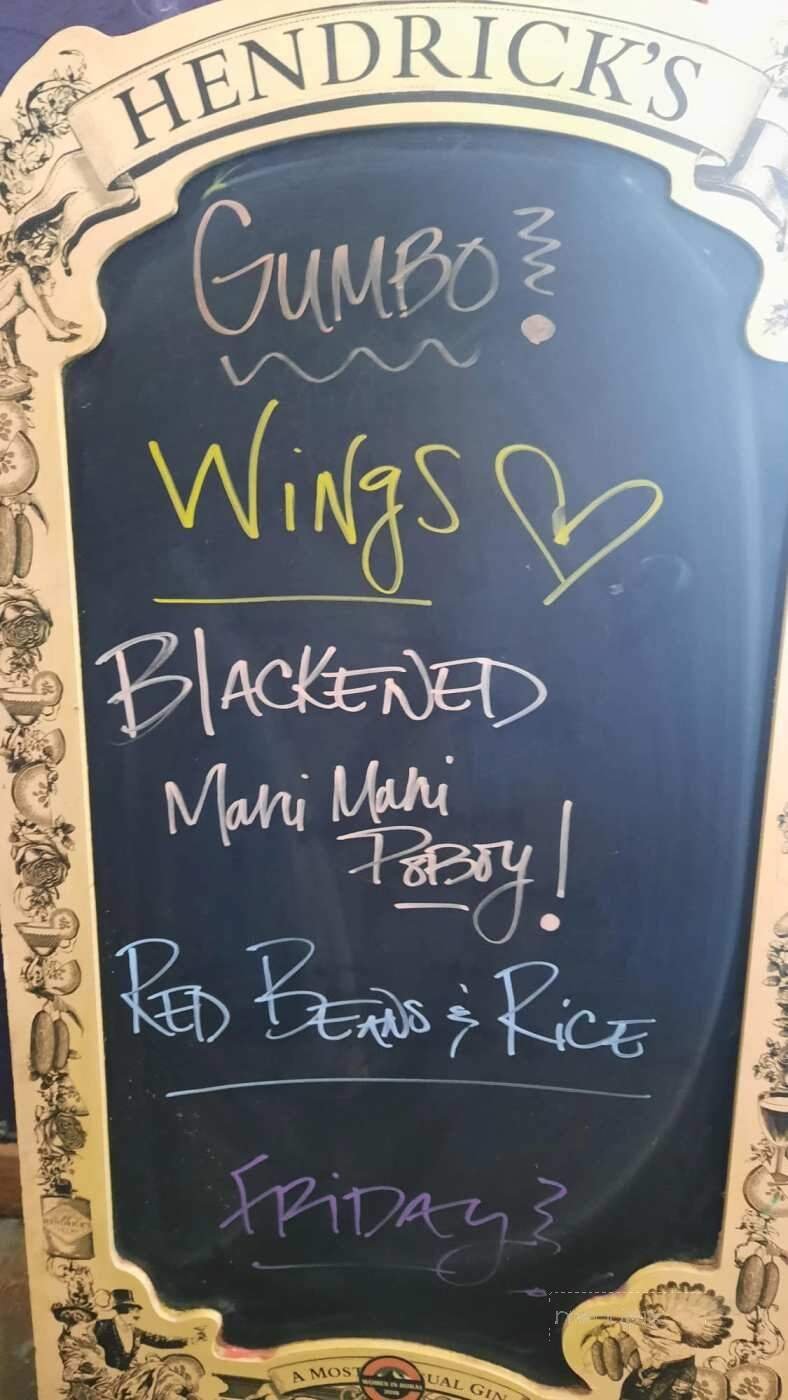 HENDRICK'S
GUMBO!
WiNgS
BlACKENED
Mahi Mahi
PoBoy!
RED BEANS & RiCE
FRiDAy!
A MOST UAL GIN